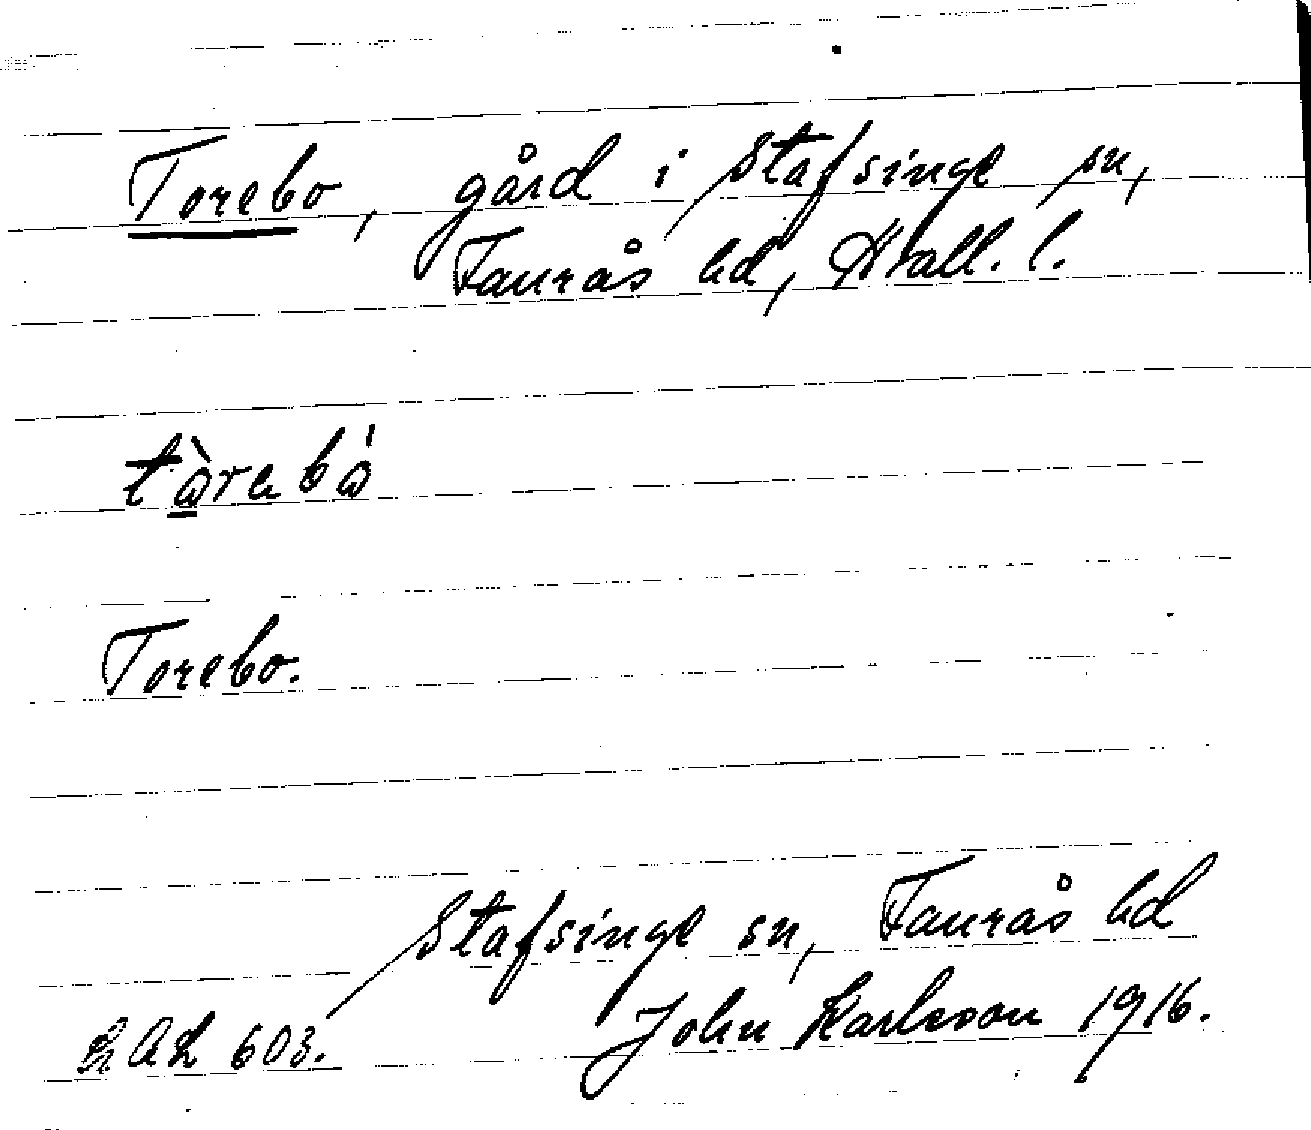 Torebo, gård i Stafsinge sn,
Faurås hd, Hall. l.
tàrebå
Torebo.
Stafsinge sn, Faurås hd
John Karlsson 1916.